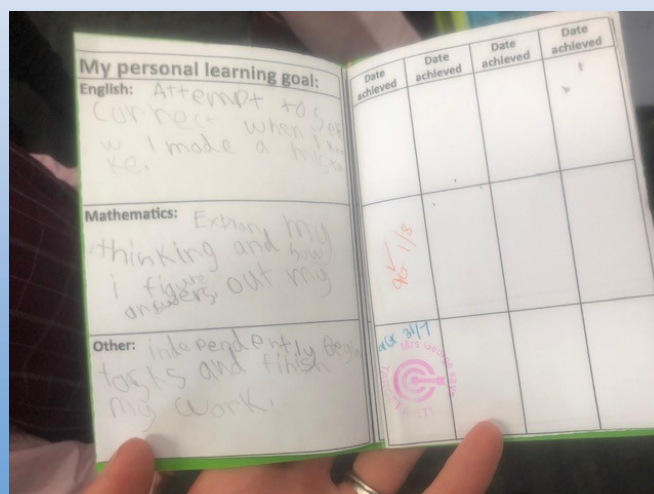 My personal learning goal:
English: Attempt to self
correct when I kno
w I made a mista
ke.
Mathematics: Explain my
thinking and how
i figure out my
answers.
Other: independently begin
tasks and finish
my work.
Date achieved
Date achieved
Date achieved
Date achieved
1/8
31/7
Mrs George says